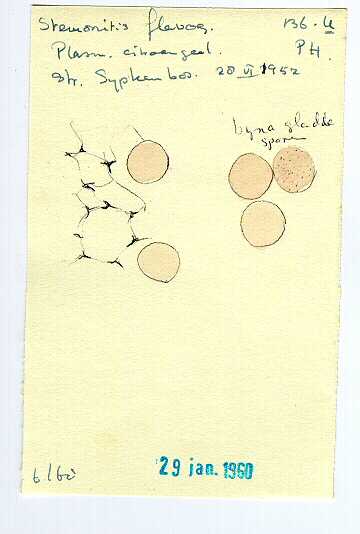 Stemonitis flavog. 136-U
Plasm. citroengeel. PH.
Str. Sypkenbos. 20 VI 1952
byna gladde
sporen
29 jan. 1960